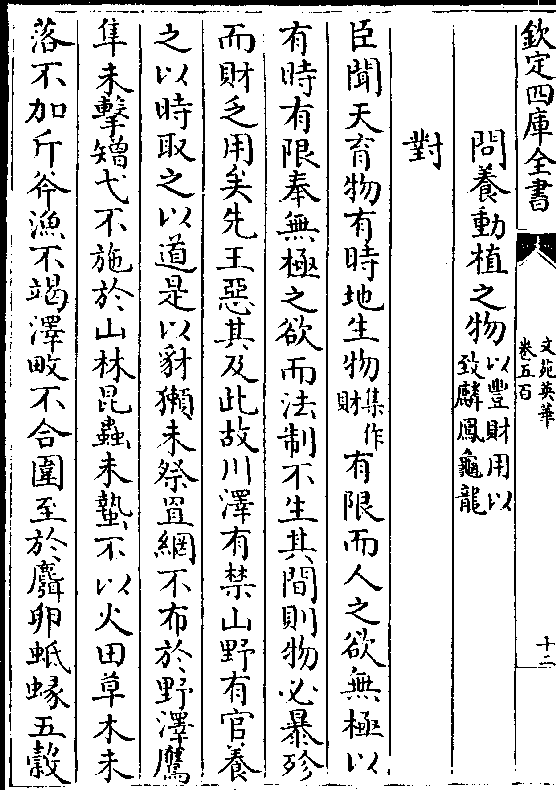 欽定四庫全書
文苑英華
卷五百
十二
問養動植之物以豐財用以
致麟鳳龜龍
對
臣聞天育物有時地生物集作
財有限而人之欲無極以
有時有限奉無極之欲而法制不生其間則物必暴殄
而財乏用矣先王惡其及此故川澤有禁山野有官養
之以時取之以道是以豺獺未祭罝網不布於野澤鷹
隼未擊矰弋不施於山林昆蟲未蟄不以火田草木未
落不加斤斧漁不竭澤畋不合圍至於麛卵蚳蝝五穀